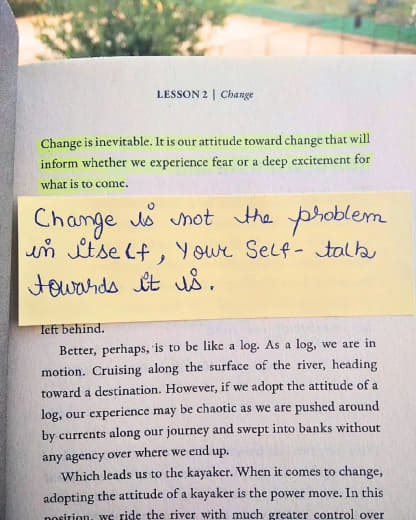 LESSON 2 | Change
Change is inevitable. It is our attitude toward change that will
inform whether we experience fear or a deep excitement for
what is to come.
Change is not the problem
in itself, Your Self-talk
towards it is.
left behind.
Better, perhaps, is to be like a log. As a log, we are in
motion. Cruising along the surface of the river, heading
toward a destination. However, if we adopt the attitude of a
log, our experience may be chaotic as we are pushed around
by currents along our journey and swept into banks without
any agency over where we end up.
Which leads us to the kayaker. When it comes to change,
adopting the attitude of a kayaker is the power move. In this
position, we ride the river with much greater control over